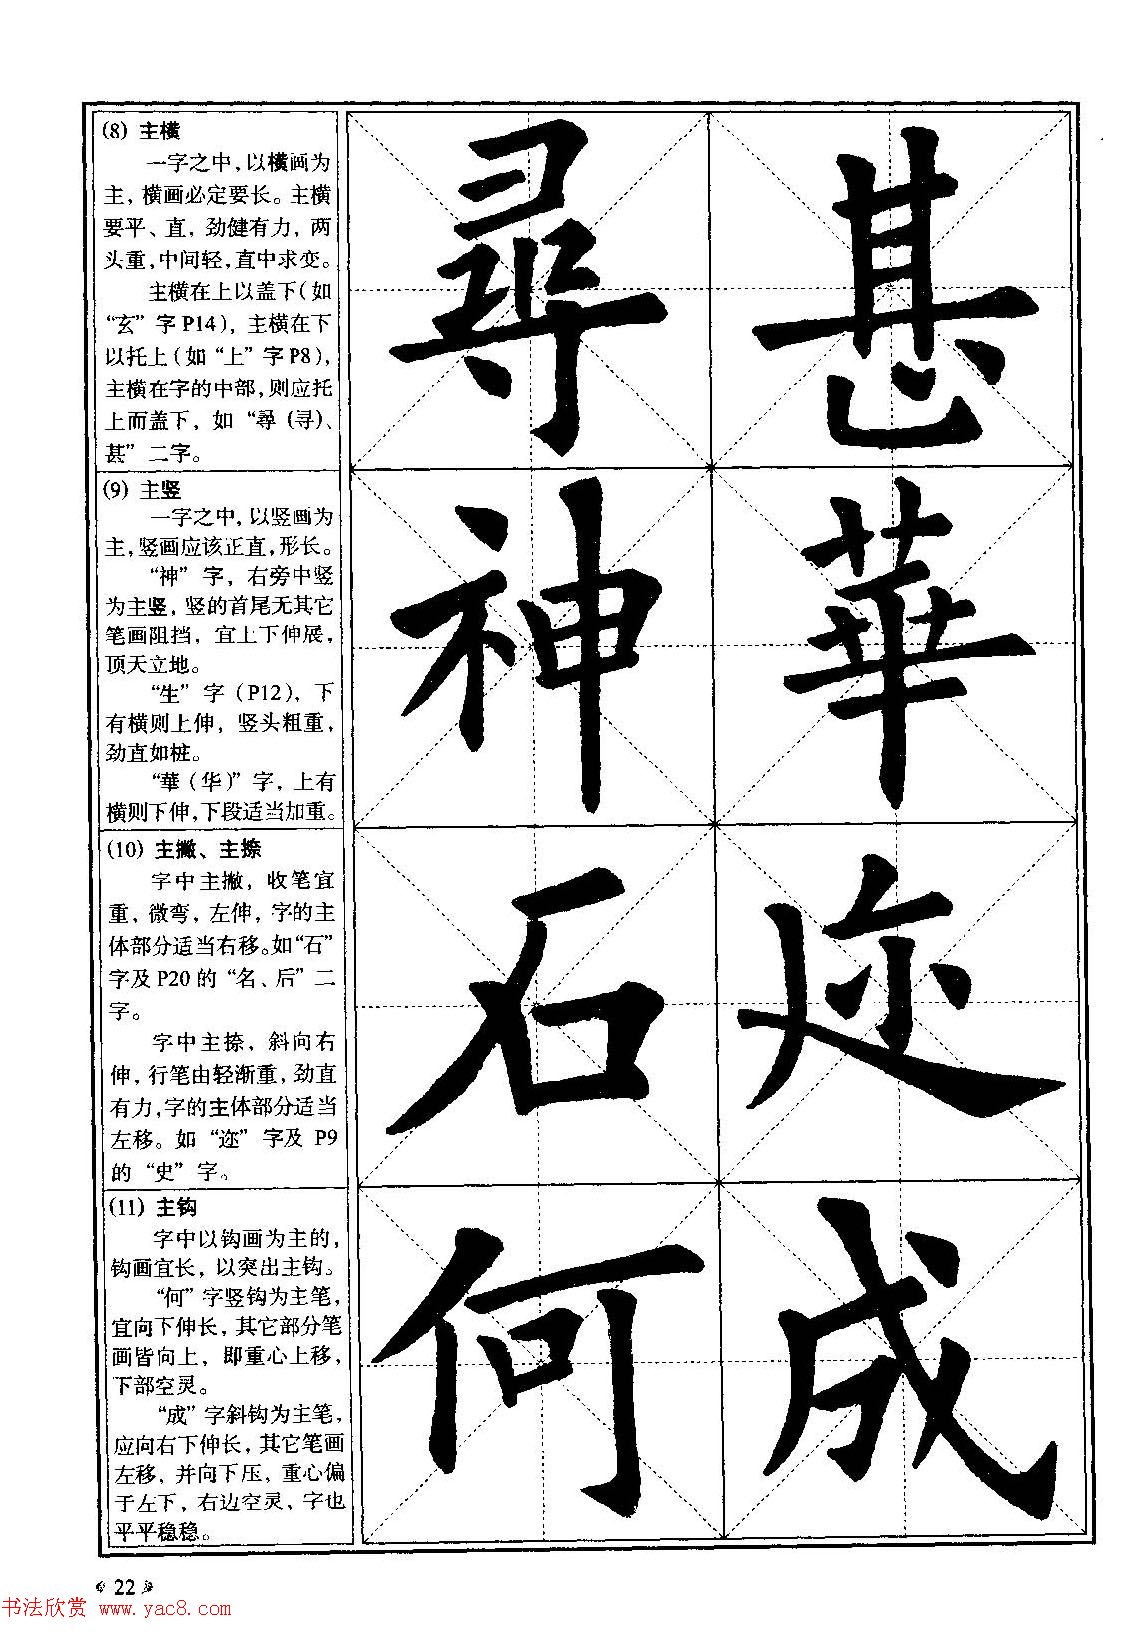 (8) 主横
一字之中，以横画为
主，横画必定要长。主横
要平、直，劲健有力，两
头重，中间轻，直中求变。
主横在上以盖下（如
“玄”字P14），主横在下
以托上（如“上”字P8），
主横在字的中部，则应托
上而盖下，如“尋（寻）、
甚”二字。
尋 甚
(9) 主竖
一字之中，以竖画为
主，竖画应该正直，形长。
“神”字，右旁中竖
为主竖，竖的首尾无其它
笔画阻挡，宜上下伸展，
顶天立地。
“生”字（P12），下
有横则上伸，竖头粗重，
劲直如桩。
“華（华）”字，上有
横则下伸，下段适当加重。
神 華
(10) 主撇、主捺
字中主撇，收笔宜
重，微弯，左伸，字的主
体部分适当右移。如“石”
字及P20的“名、后”二
字。
字中主捺，斜向右
伸，行笔由轻渐重，劲直
有力，字的主体部分适当
左移。如“迩”字及 P9
的“史”字。
石 迩
(11) 主钩
字中以钩画为主的，
钩画宜长，以突出主钩。
“何”字竖钩为主笔，
宜向下伸长，其它部分笔
画皆向上，即重心上移，
下部空灵。
“成”字斜钩为主笔，
应向右下伸长，其它笔画
左移，并向下压，重心偏
于左下，右边空灵，字也
平平稳稳。
何 成
22
书法欣赏 www.yac8.com